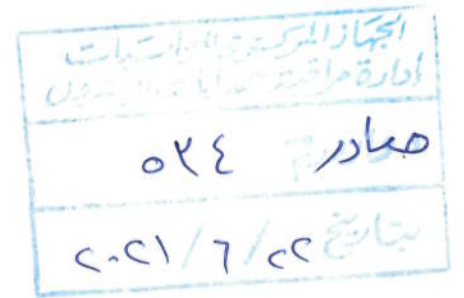 الجهاز المركزي للمحاسبات
إدارة مراقبة حسابات البترول
صادر رقم ٥٣٤
بتاريخ ٢٢/٦/٢٠٢١